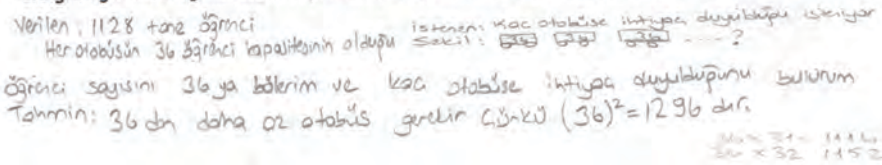 Verilen: 1128 tane öğrenci
Her otobüsün 36 öğrenci kapasitesinin olduğu
istenen: Kaç otobüse ihtiyaç duyulduğu isteniyor
Şekil: 36 36 36 ....?
öğrenci sayısını 36 ya bölerim ve kaç otobüse ihtiyaç duyulduğunu bulurum
Tahmin: 36 dan daha az otobüs gerekir Çünkü (36)² = 1296 dır.
36 x 31 = 1116
36 x 32 1152